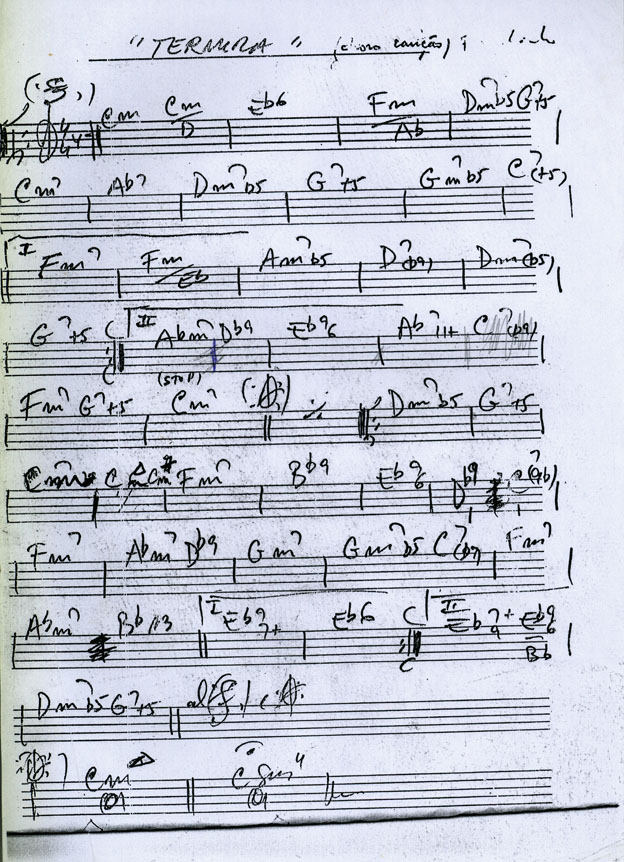 "TERNURA" (choro canção)
Cm Cm/D Eb6 Fm/Ab Dm7b5 G7+5
Cm7 Ab7 Dm7b5 G7+5 Gm7b5 C7(+5)
I Fm7 Fm/Eb Am7b5 D7(b9) Dm7(b5)
G7+5 II Abm7 Db9 Eb6/9 Ab711+ C7(b9)
(STOP)
Fm7 G7+5 Cm7 Dm7b5 G7+5
Fm7 Bb9 Eb6/9 Db9
Fm7 Abm7 Db9 Gm7 Gm7b5 C7(b9) Fm7
Abm7 Bb13 I Eb9/7+ Eb6 II Eb7+/9 Eb9/6/Bb
Dm7b5 G7+5 al
Cm△ C Sus4